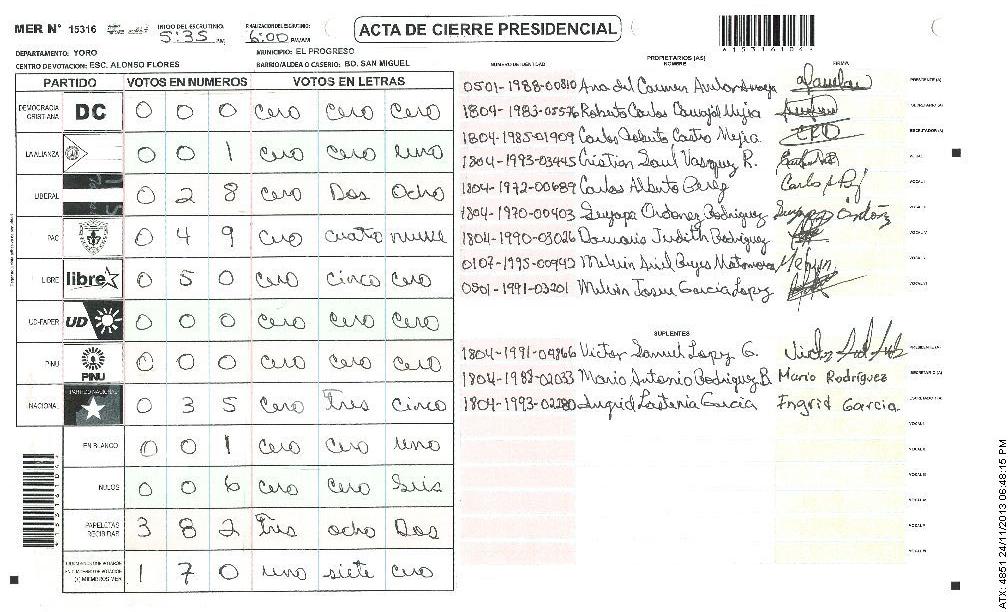 MER N° 15316 INICIO DEL ESCRUTINIO: 5:35 PM FINALIZACION DEL ESCRUTINIO: 6:00 PM/AM ACTA DE CIERRE PRESIDENCIAL
DEPARTAMENTO: YORO MUNICIPIO: EL PROGRESO
CENTRO DE VOTACION: ESC. ALONSO FLORES BARRIO/ALDEA O CASERIO: BO. SAN MIGUEL
PARTIDO VOTOS EN NUMEROS VOTOS EN LETRAS
DEMOCRACIA CRISTIANA DC 0 0 0 Cero Cero Cero
LA ALIANZA 0 0 1 Cero Cero uno
LIBERAL 0 2 8 Cero Dos Ocho
PAC 0 4 9 Cero cuatro nueve
LIBRE libre 0 5 0 Cero Cinco Cero
UD-FAPER UD 0 0 0 Cero Cero Cero
PINU PINU 0 0 0 Cero Cero Cero
NACIONAL PARTIDO NACIONAL 0 3 5 Cero Tres Cinco
EN BLANCO 0 0 1 Cero Cero uno
NULOS 0 0 6 Cero Cero Seis
PAPELETAS RECIBIDAS 3 8 2 Tres ocho Dos
(+) MIEMBROS MER 1 7 0 uno siete cero
PROPIETARIOS (AS)
NUMERO DE IDENTIDAD NOMBRE FIRMA
0501-1988-00810 Ana del Carmen PRESIDENTE(A)
1804-1983-05576 Roberto Carlos Carvajal Mejia SECRETARIO(A)
1804-1985-01909 Carlos Roberto Castro Mejia ESCRUTADOR(A)
1804-1993-03445 Cristian Saul Vasquez R. VOCAL I
1804-1972-00689 Carlos Alberto Perez
1804-1970-00403 Suyapa Ordonez Rodriguez
1804-1990-03026 Damaris Judith Rodriguez
0107-1995-00942 Melvin Ariel Reyes Matamoros Melvin
0501-1991-03201 Melvin Josue Garcia Lopez
SUPLENTES
1804-1991-04866 Victor Samuel Lopez G. PRESIDENTE(A)
1804-1982-02033 Mario Antonio Rodriguez B Mario Rodríguez SECRETARIO(A)
1804-1993-02280 Ingrid Lastenia Garcia Ingrid Garcia ESCRUTADOR(A)
ATX: 4851 24/11/2013 06:48:15 PM